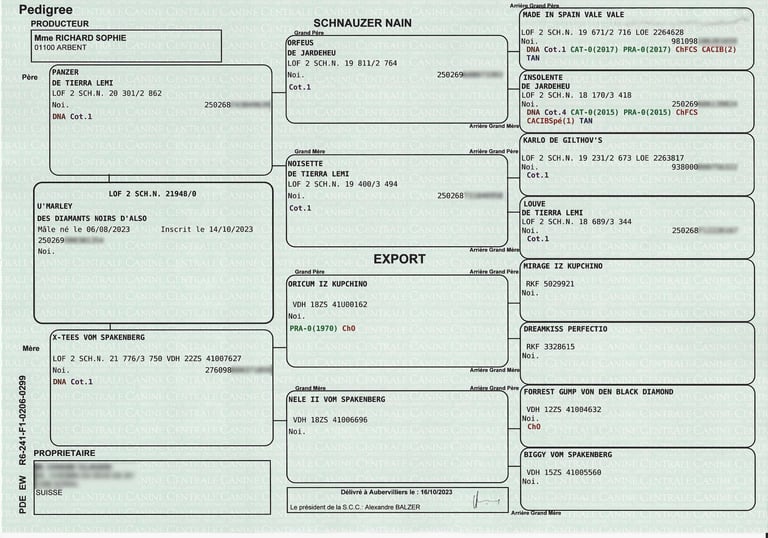 Pedigree
PRODUCTEUR
Mme RICHARD SOPHIE
01100 ARBENT
SCHNAUZER NAIN
Père
PANZER
DE TIERRA LEMI
LOF 2 SCH.N. 20 301/2 862
Noi.
250268
DNA Cot.1
LOF 2 SCH.N. 21948/0
U'MARLEY
DES DIAMANTS NOIRS D'ALSO
Mâle né le 06/08/2023 Inscrit le 14/10/2023
250269
Noi.
Mère
X-TEES VOM SPAKENBERG
LOF 2 SCH.N. 21 776/3 750 VDH 22ZS 41007627
Noi.
276098
DNA Cot.1
PROPRIETAIRE
SUISSE
PDE EW R6-241-F1-0206-0299
Grand Père
ORFEUS
DE JARDEHEU
LOF 2 SCH.N. 19 811/2 764
Noi.
250269
Cot.1
Arrière Grand Mère
Grand Mère
Arrière Grand Père
NOISETTE
DE TIERRA LEMI
LOF 2 SCH.N. 19 400/3 494
Noi.
250268
Cot.1
Arrière Grand Mère
EXPORT
Grand Père
Arrière Grand Père
ORICUM IZ KUPCHINO
VDH 18ZS 41U00162
Noi.
PRA-0(1970) ChO
Arrière Grand Mère
Grand Mère
Arrière Grand Père
NELE II VOM SPAKENBERG
VDH 18ZS 41006696
Noi.
Délivré à Aubervilliers le : 16/10/2023
Le président de la S.C.C.: Alexandre BALZER
Arrière Grand Père
MADE IN SPAIN VALE VALE
LOF 2 SCH.N. 19 671/2 716 LOE 2264628
Noi.
981098
DNA Cot.1 CAT-0(2017) PRA-0(2017) ChFCS CACIB(2)
TAN
INSOLENTE
DE JARDEHEU
LOF 2 SCH.N. 18 170/3 418
Noi.
250269
DNA Cot.4 CAT-0(2015) PRA-0(2015) ChFCS
CACIBSpé(1) TAN
KARLO DE GILTHOV'S
LOF 2 SCH.N. 19 231/2 673 LOE 2263817
Noi.
938000
Cot.1
LOUVE
DE TIERRA LEMI
LOF 2 SCH.N. 18 689/3 344
Noi.
250268
Cot.1
MIRAGE IZ KUPCHINO
RKF 5029921
Noi.
DREAMKISS PERFECTIO
RKF 3328615
Noi.
FORREST GUMP VON DEN BLACK DIAMOND
VDH 12ZS 41004632
Noi.
ChO
BIGGY VOM SPAKENBERG
VDH 15ZS 41005560
Noi.
Arrière Grand Mère